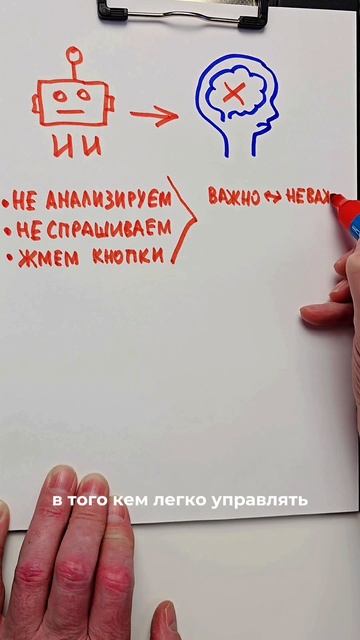 ИИ
• НЕ АНАЛИЗИРУЕМ
• НЕ СПРАШИВАЕМ
• ЖМЕМ КНОПКИ
ВАЖНО ↔ НЕВАЖ
в того кем легко управлять